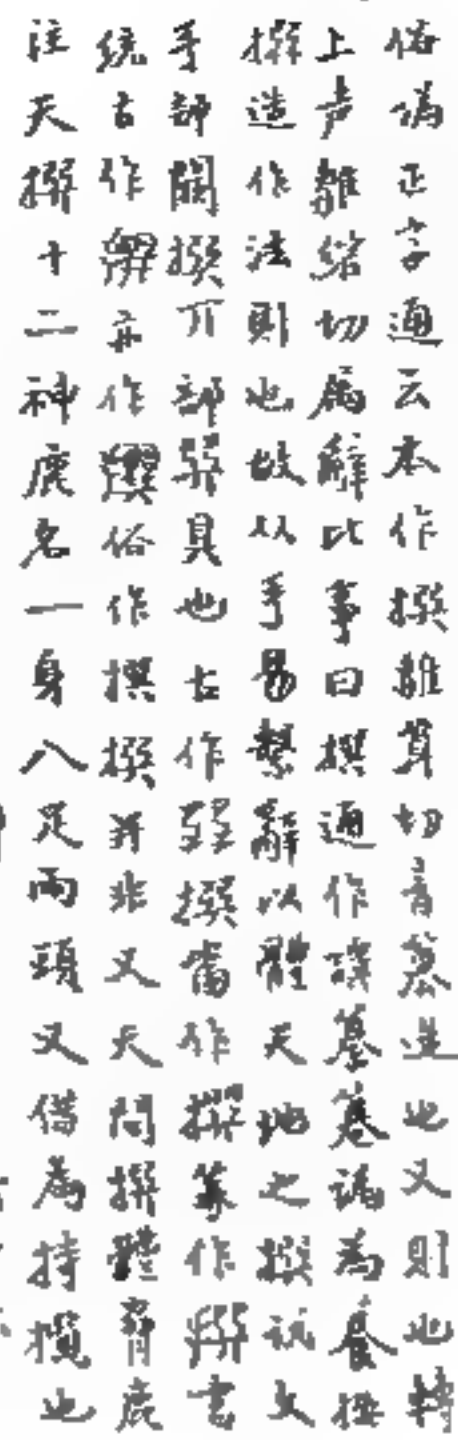 俗譌正字通云本作撰雛算切音篡造也又則也轉
上声雛綰切属辭比事曰撰通作譔篹篡譌為養撰
撰造作法則也故从手易繫辭以體天地之撰說文
手部闕撰丌部巽具也古作巺撰當作撰篆作書
統古作亦作俗作撰撰并非又天問撰體脅鹿
注天撰十二神鹿名一身八足兩頭又借為持攬也